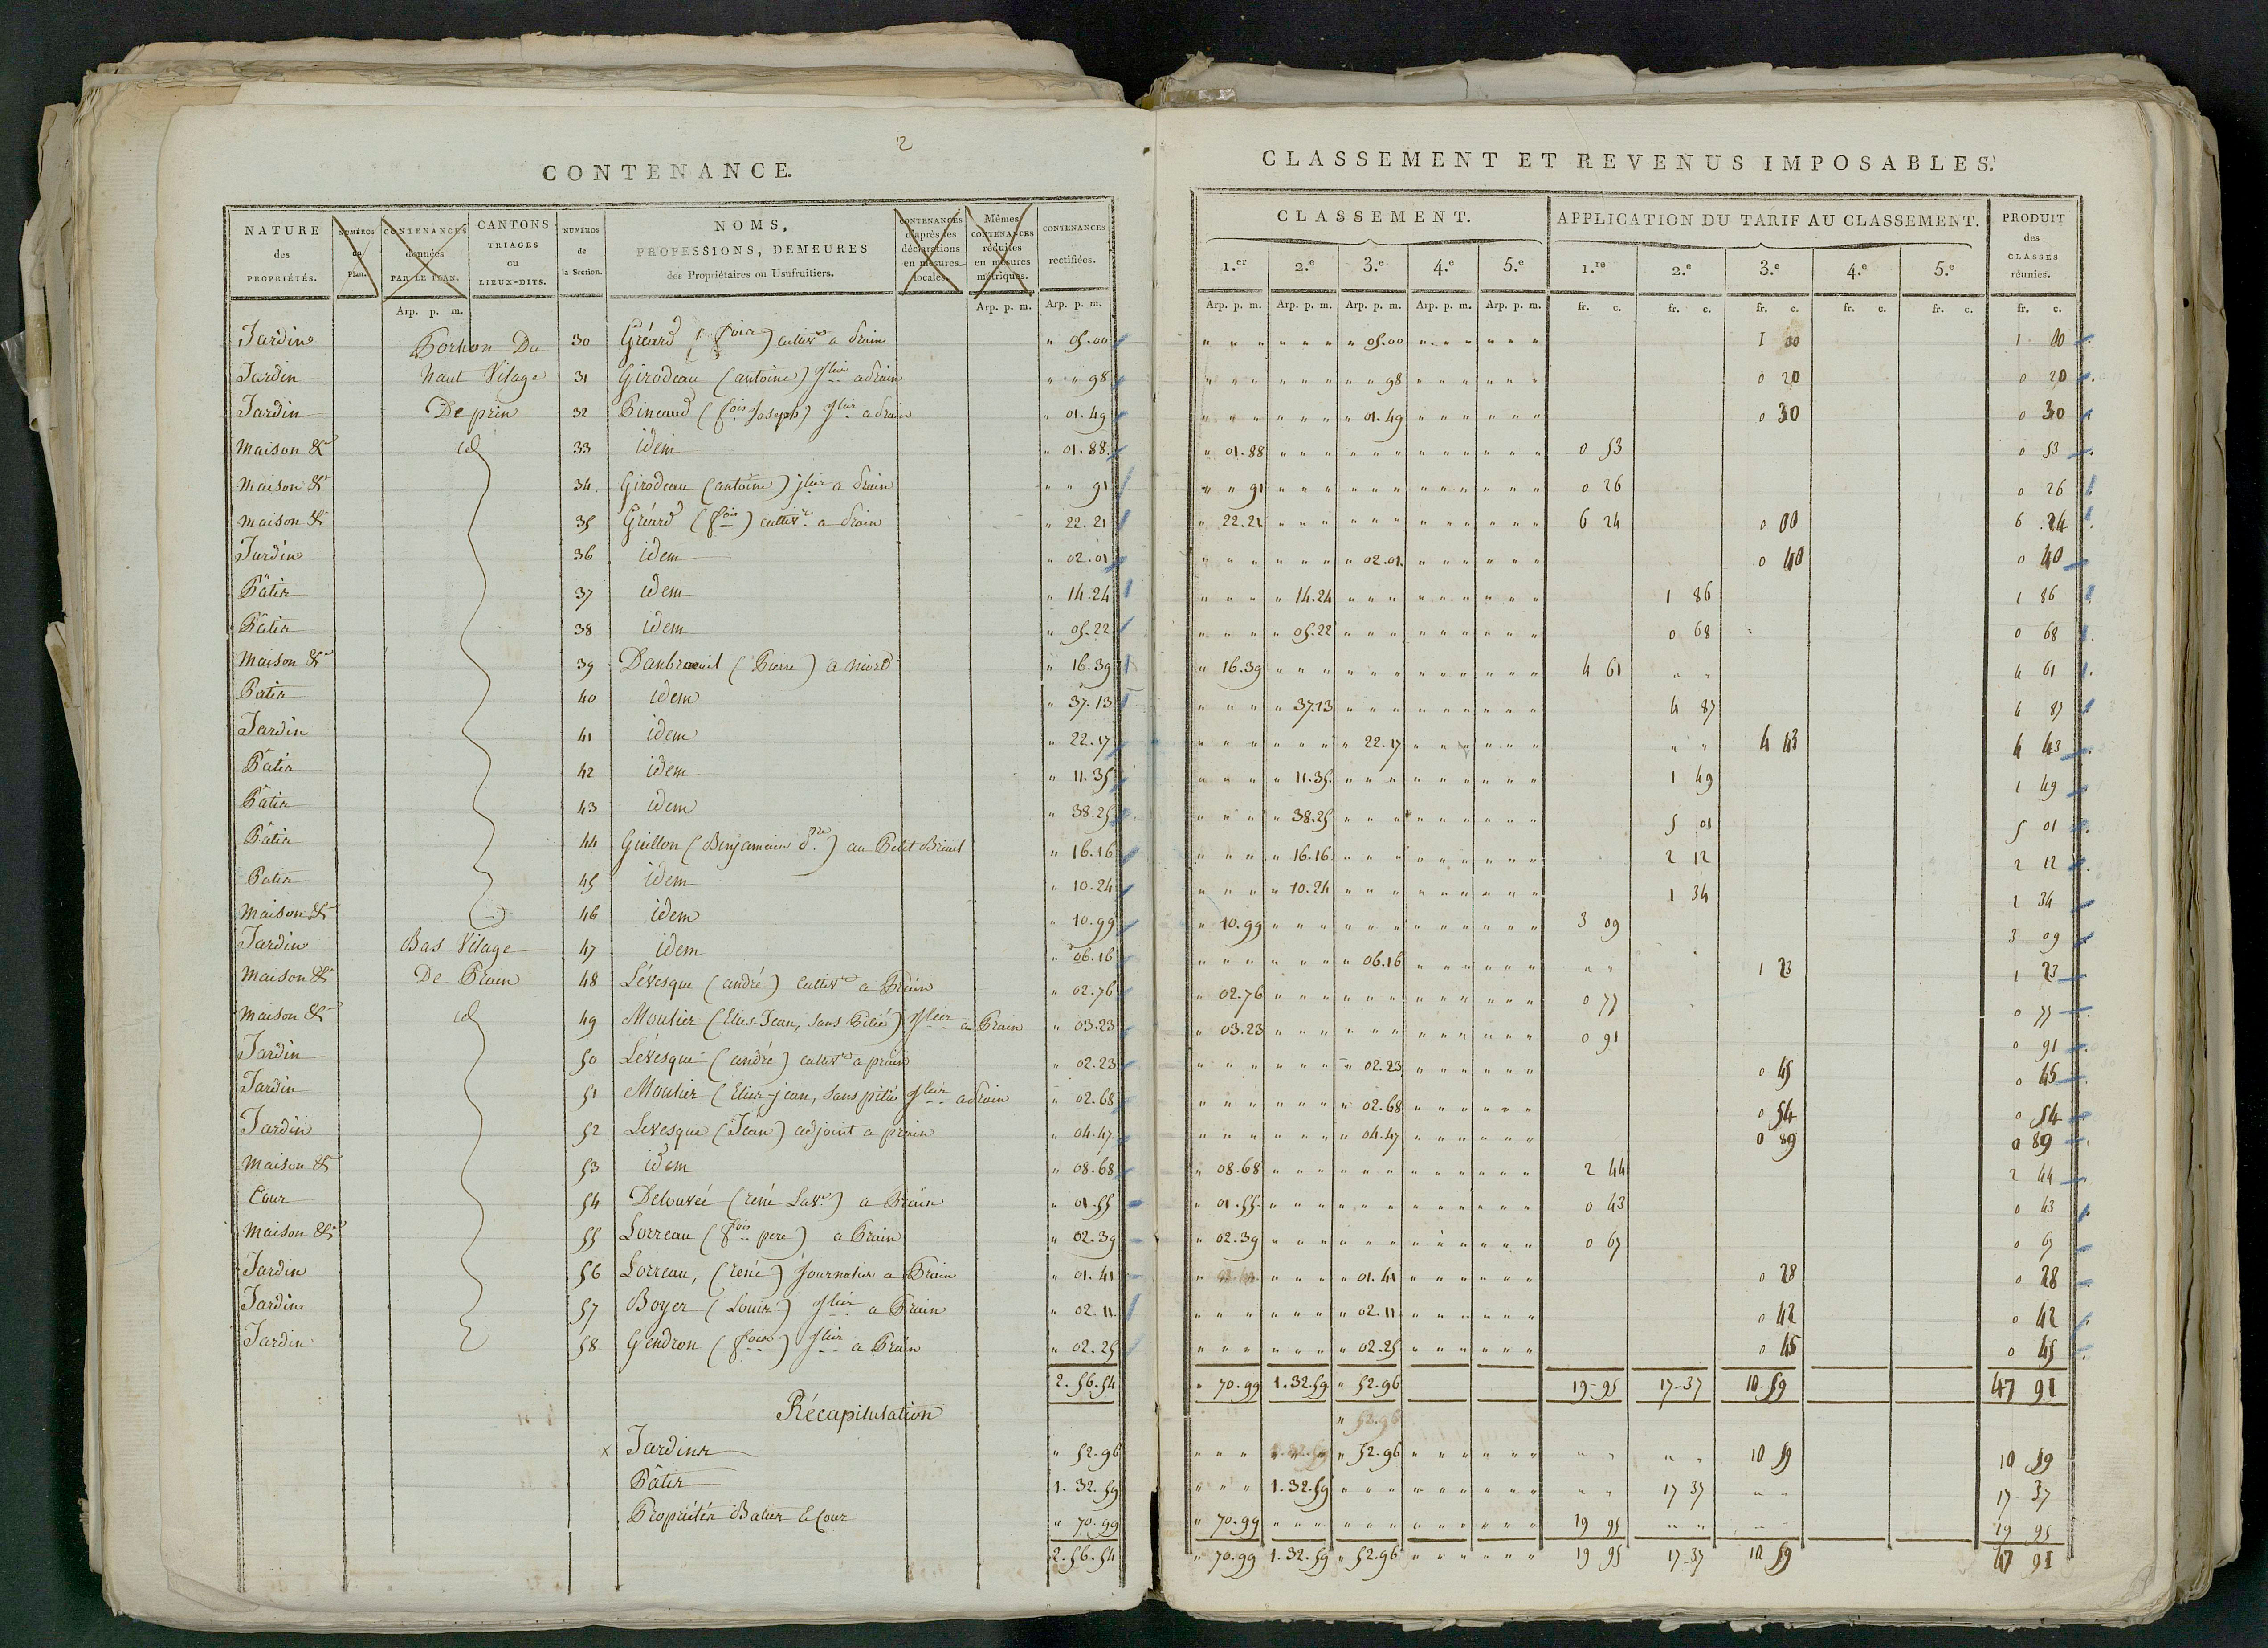 2
CONTENANCE.
NATURE des PROPRIÉTÉS. NUMÉROS du Plan. CONTENANCES données PAR LE PLAN. CANTONS TRIAGES ou LIEUX-DITS. NUMÉROS de la Section. NOMS, PROFESSIONS, DEMEURES des Propriétaires ou Usufruitiers. CONTENANCES d'après les déclarations en mesures locales. Mêmes CONTENANCES réduites en mesures métriques. CONTENANCES rectifiées.
Arp. p. m. Arp. p. m. Arp. p. m.
Jardin Portion Du 30 Gréard (fois) cultivr a Prain " 05.00
Jardin haut Vilage 31 Girodeau (antoine) jlier a Prain " " 98
Jardin De prin 32 Pineaud (fois Joseph) jlier a Prain " 01.49
Maison &r id 33 idem " 01.88
Maison &r 34 Girodeau (antoine) jlier a Prain " " 91
Maison &r 35 Gréard (fois) cultivr a Prain " 22.21
Jardin 36 idem " 02.01
Pâtis 37 idem " 14.24
Pâtis 38 idem " 05.22
Maison &r 39 Danbraeuil (Pierre) a Niord " 16.39
Patis 40 idem " 37.13
Jardin 41 idem " 22.17
Pâtis 42 idem " 11.35
Pâtis 43 idem " 38.25
Pâtis 44 Guillon (Benjamain) au Petit Breuil " 16.16
Patis 45 idem " 10.24
Maison &r 46 idem " 10.99
Jardin Bas Vilage 47 idem " 06.16
Maison &r De Prain 48 Lévesque (andré) cultivr a Prain " 02.76
Maison &r id 49 Moulier (Elie-Jean, Sans Pitié) jlier a Prain " 03.23
Jardin 50 Lévesque (andré) cultivr a prain " 02.23
Jardin 51 Moulier (Elie-jean, Sans pitié jlier a Prain " 02.68
Jardin 52 Levesque (Jean) adjoint a prain " 04.47
Maison &r 53 idem " 08.68
Cour 54 Delouvée (rené) a Prain " 01.55
Maison &r 55 Lorreau (fois pere) a Prain " 02.39
Jardin 56 Lorreau, (rené) Journalier a Prain " 01.41
Jardin 57 Boyer (Louis) jlier a Prain " 02.11
Jardin 58 Gendron (fois) jlier a Prain " 02.25
2.56.54
Récapitulation
x Jardins " 52.96
Pâtis 1.32.59
Propriétés Baties & Cour " 70.99
2.56.54
CLASSEMENT ET REVENUS IMPOSABLES.
CLASSEMENT. APPLICATION DU TARIF AU CLASSEMENT. PRODUIT des CLASSES réunies.
1.er 2.e 3.e 4.e 5.e 1.re 2.e 3.e 4.e 5.e
Arp. p. m. Arp. p. m. Arp. p. m. Arp. p. m. Arp. p. m. fr. c. fr. c. fr. c. fr. c. fr. c. fr. c.
" 05.00 1 00 1 00
" " 98 0 20 0 20
" 01.49 0 30 0 30
" 01.88 0 53 0 53
" " 91 0 26 0 26
" 22.21 6 24 0 00 6 24
" 02.01 0 40 0 40
" 14.24 1 86 1 86
" 05.22 0 68 0 68
" 16.39 4 61 " " 4 61
" 37.13 4 87 4 87
" 22.17 " " 4 43 4 43
" 11.35 1 49 1 49
" 38.25 5 01 5 01
" 16.16 2 12 2 12
" 10.24 1 34 1 34
" 10.99 3 09 3 09
" 06.16 " " 1 23 1 23
" 02.76 0 77 0 77
" 03.23 0 91 0 91
" 02.23 0 45 0 45
" 02.68 0 54 0 54
" 04.47 0 89 0 89
" 08.68 2 44 2 44
" 01.55 0 43 0 43
" 02.39 0 67 0 67
" 01.41 0 28 0 28
" 02.11 0 42 0 42
" 02.25 0 45 0 45
" 70.99 1.32.59 " 52.96 19-95 17-37 10-59 47 91
" 52.96
" 52.96 " " " " 10 59 10 59
1.32.59 " " 17 37 " " 17 37
" 70.99 19 95 " " " " 19 95
" 70.99 1.32.59 " 52.96 19 95 17-37 10 59 47 91